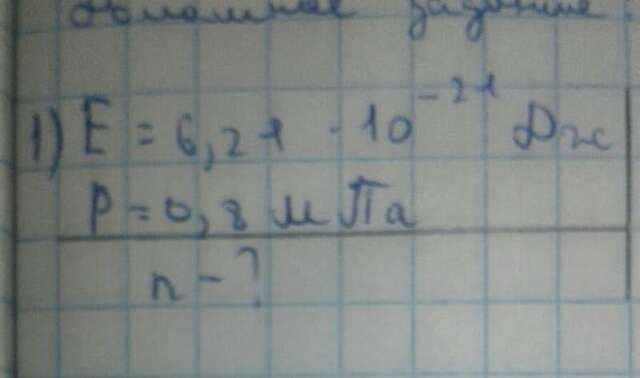 Домашнее задание
1) E = 6,21 · 10⁻²¹ Дж
P = 0,8 мПа
n - ?